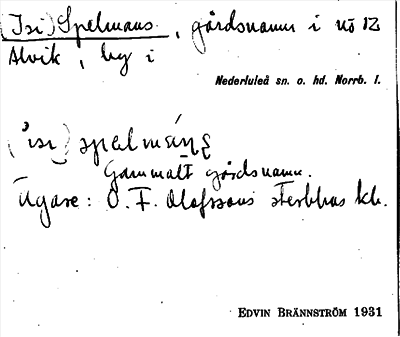 (Isi) Spelmans, gårdsnamn i nö 12
Alvik, by i
Nederluleå sn. o. hd. Norrb. l.
Gammalt gårdsnamn.
Ägare: O. F. Olofssons sterbhus
EDVIN BRÄNNSTRÖM 1931